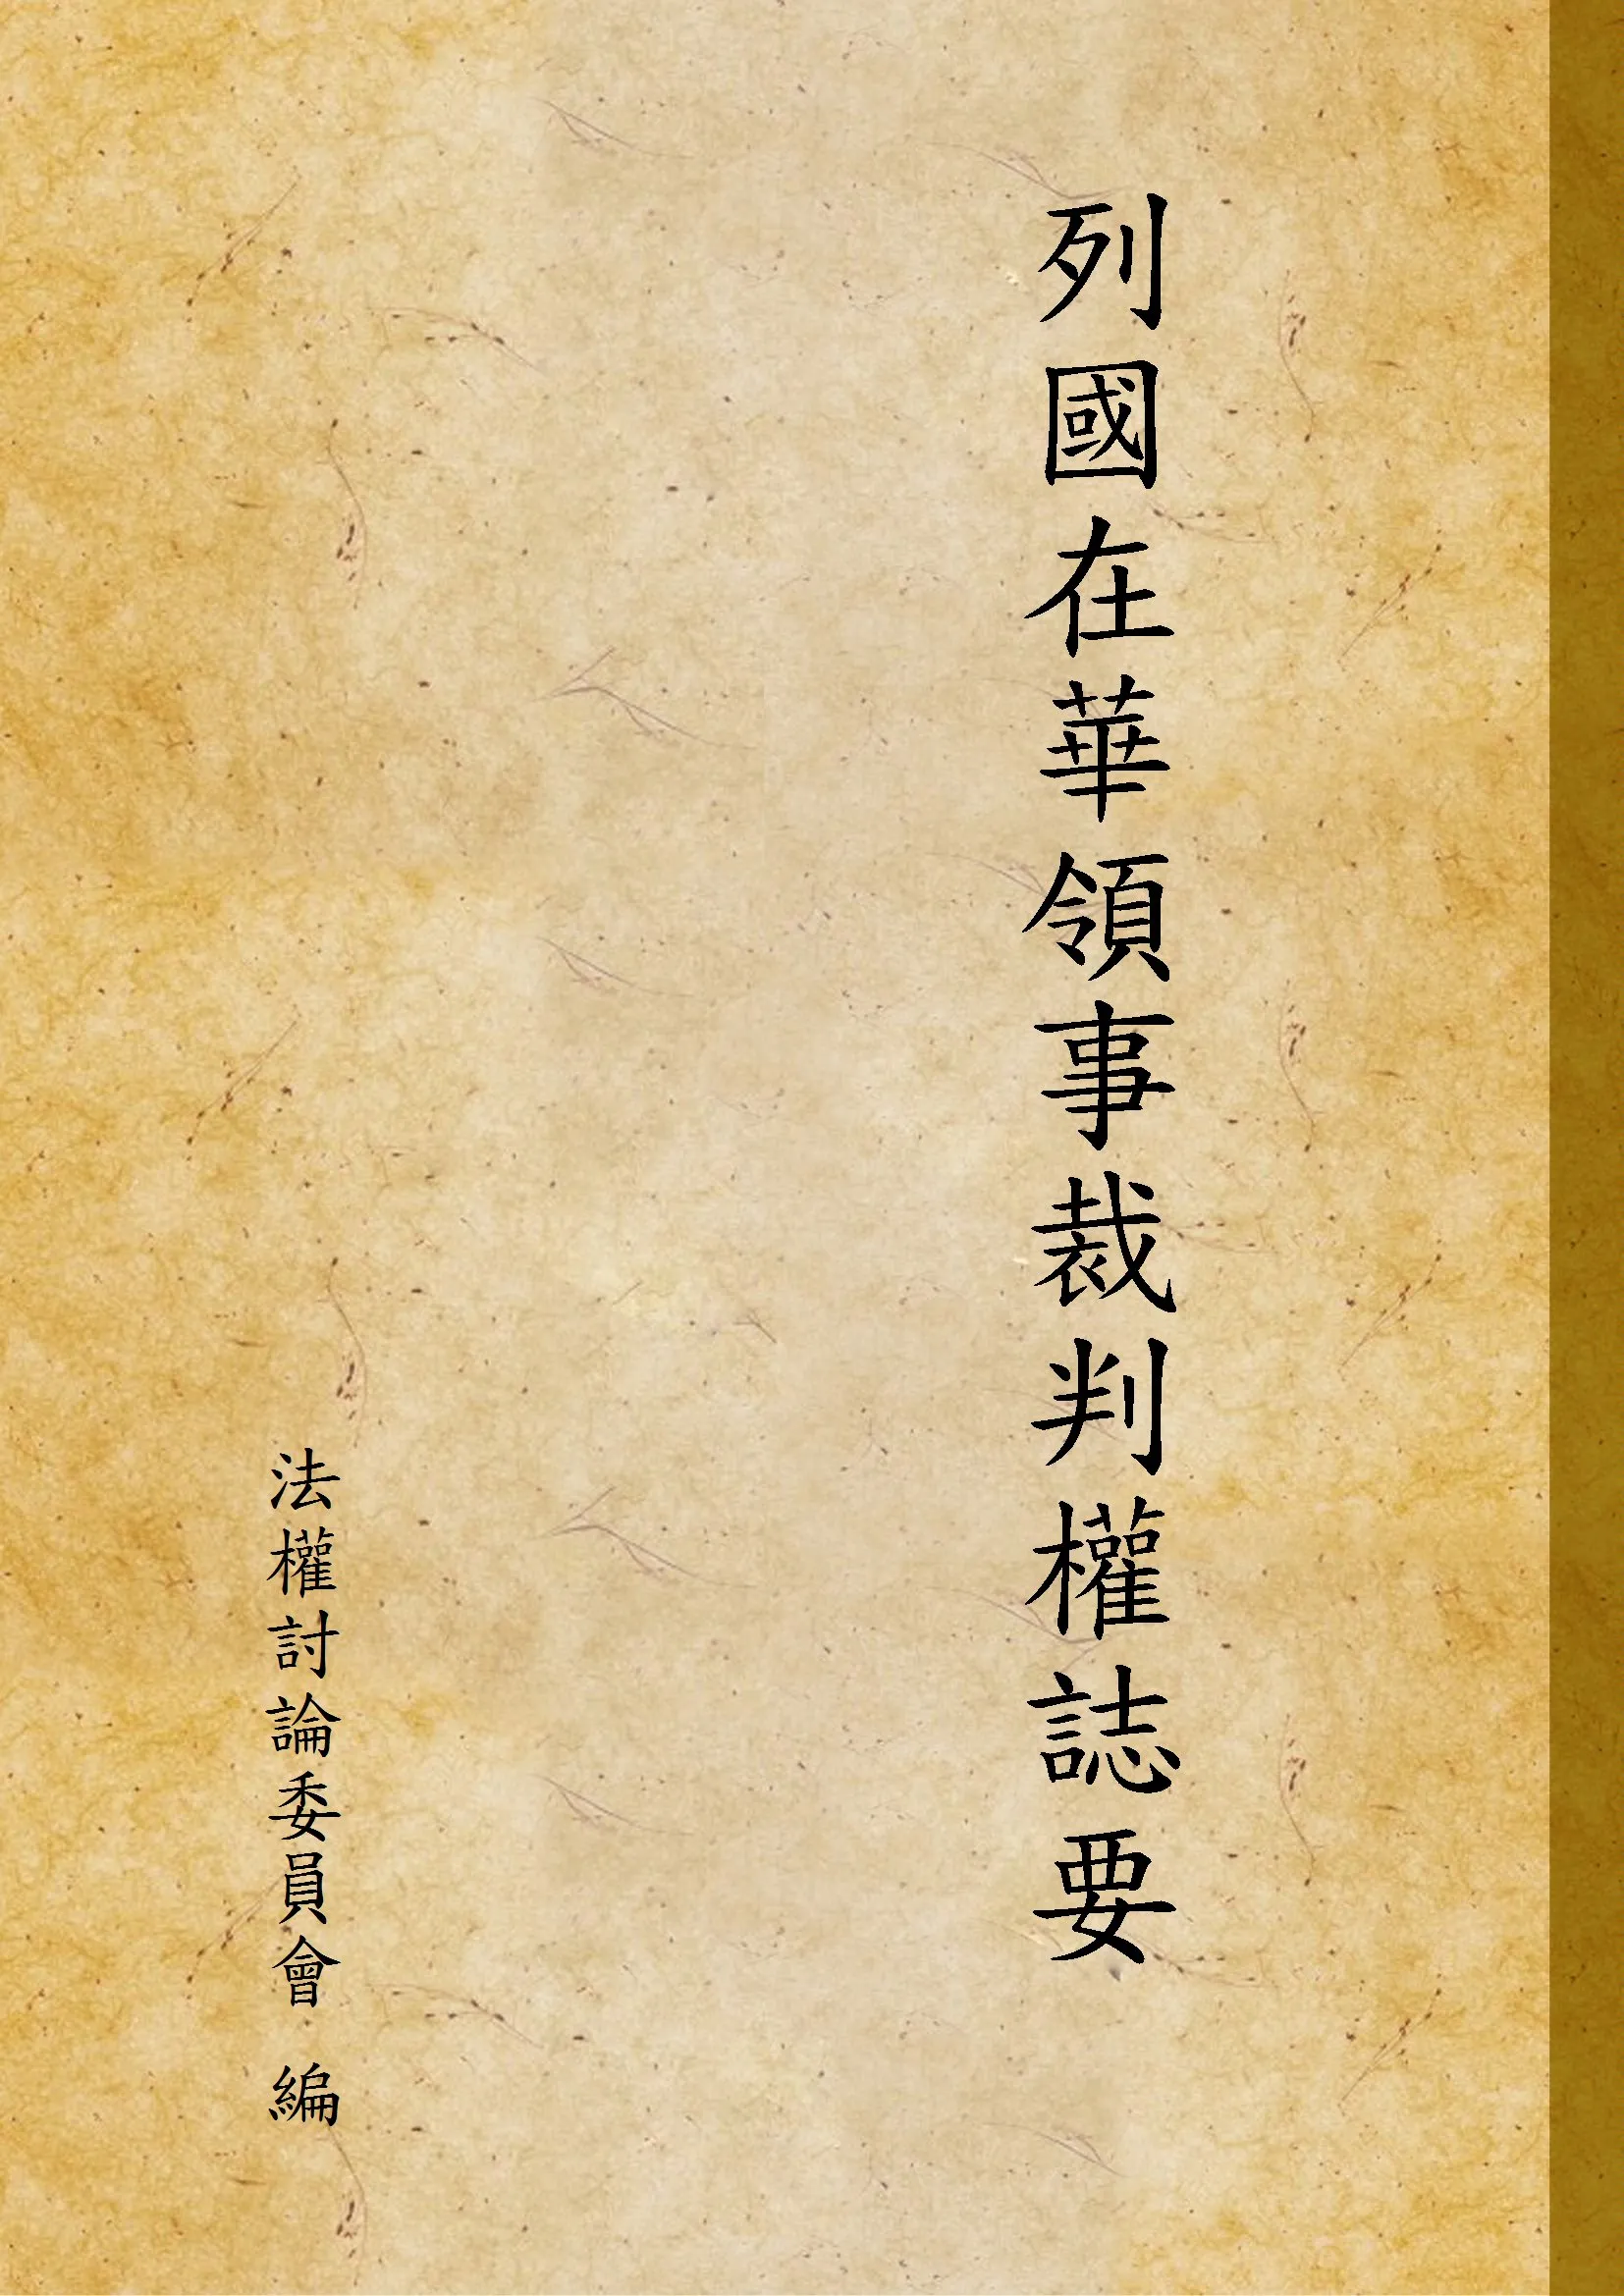 列國在華領事裁判權誌要
法權討論委員會 編